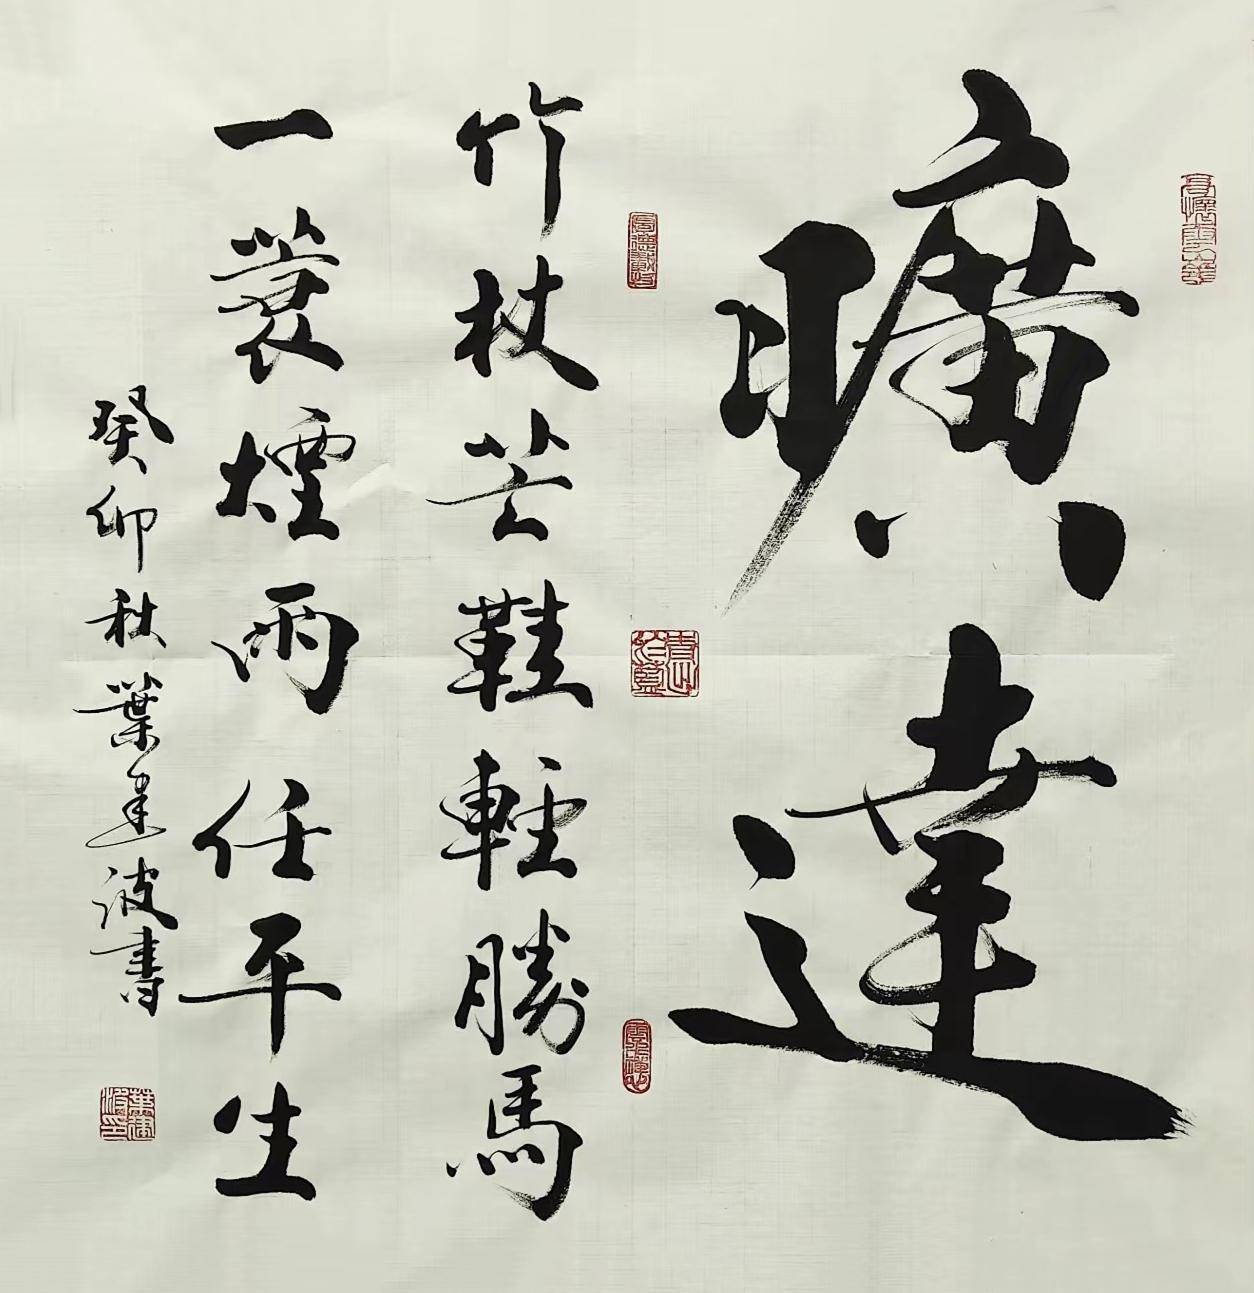 曠達
竹杖芒鞋輕勝馬
一蓑煙雨任平生
癸卯秋葉建波書
葉建波印